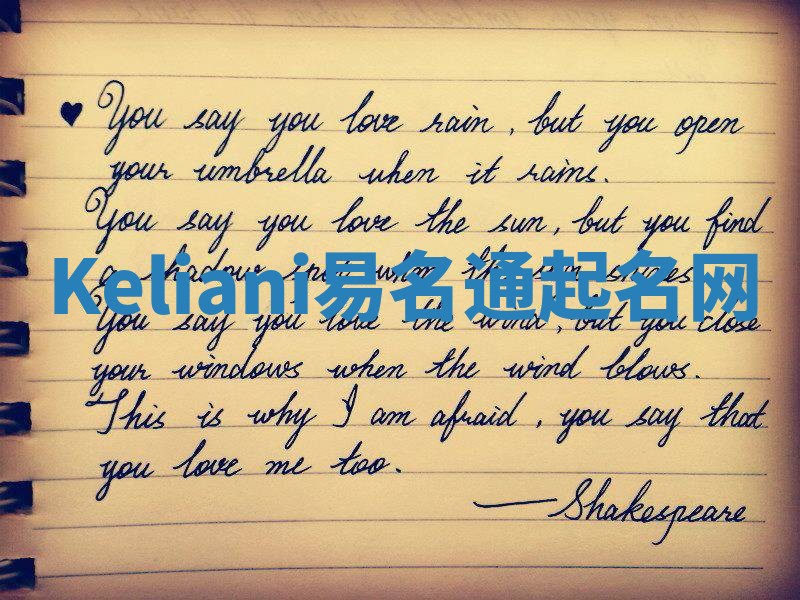 ♥ You say you love rain, but you open
your umbrella when it rains.
You say you love the sun, but you find
a shadow spot when the sun shines
Keliani易名通起名网
You say you love the wind, but you close
your windows when the wind blows.
This is why I am afraid, you say that
you love me too.
—Shakespeare